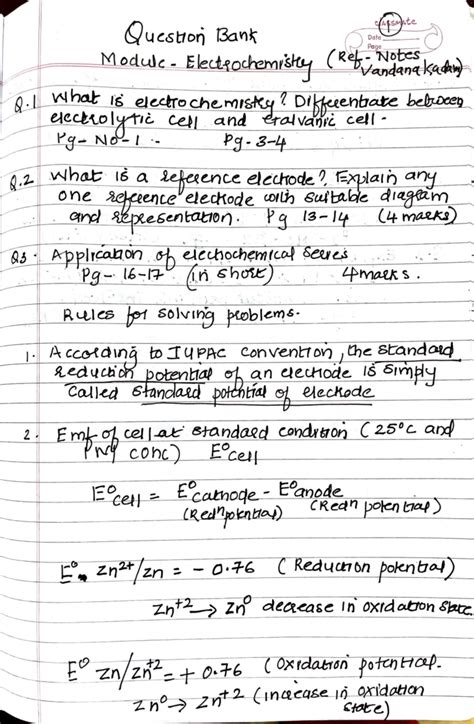 classmate
Date
Page
Question Bank
Module - Electrochemistry (Ref - Notes
Vandana Kadam)
Q.1 What is electrochemistry? Differentiate between
electrolytic cell and Galvanic cell -
Pg - No - 1 - Pg - 3-4
Q.2 What is a reference electrode? Explain any
one reference electrode with suitable diagram
and representation. Pg 13-14 (4 marks)
Q3. Application of electrochemical series
Pg - 16-17 (in short) 4 marks.
Rules for solving problems.
1. According to IUPAC convention, the standard
reduction potential of an electrode is simply
Called standard potential of electrode
2. Emf of cell at standard condition (25°C and
conc) E°cell
E°cell = E°cathode - E°anode
(Redn potential) (Redn potential)
E° Zn2+/Zn = - 0.76 (Reduction potential)
Zn+2 → Zn0 decrease in oxidation state
E° Zn/Zn+2 = + 0.76 (Oxidation potential.
Zn0 → Zn+2 (increase in oxidation
state)